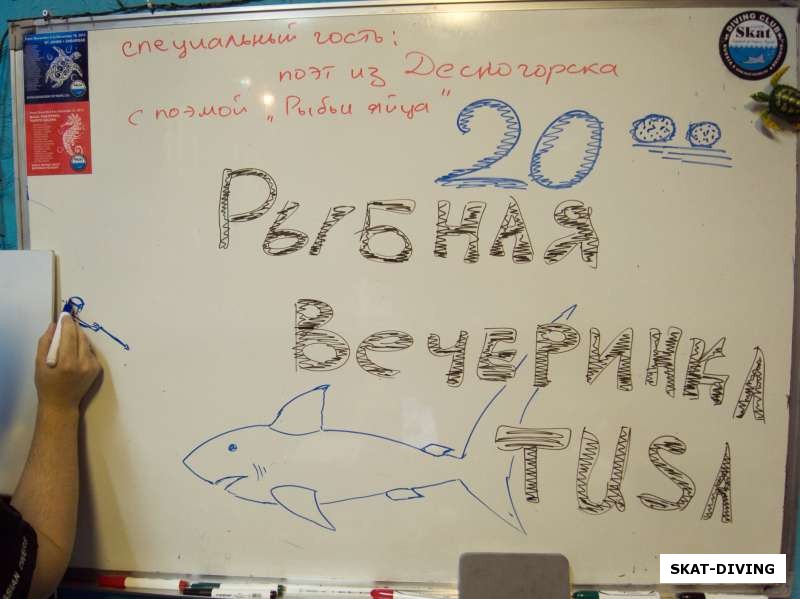 специальный гость:
поэт из Десногорска
с поэмой „Рыбьи яйца"
20 00
Рыбная
Вечеринка
TUSA
DIVING CLUB
Skat
SKAT-DIVING